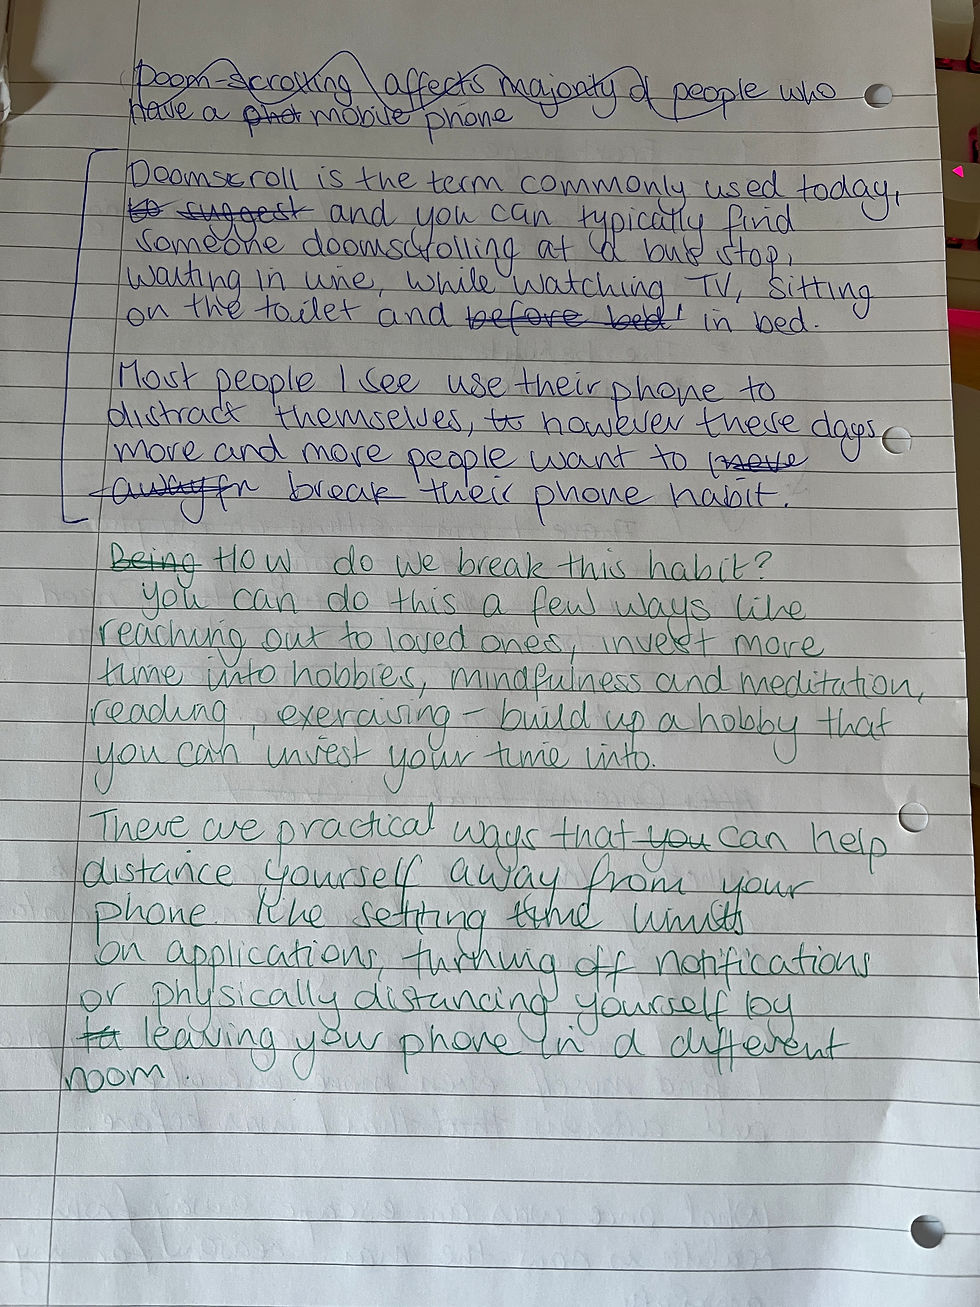 Doom-scrolling affects majority of people who
have a phot mobile phone
Doomscroll is the term commonly used today,
to suggest and you can typically find
someone doomscrolling at a bus stop,
waiting in line, while watching TV, sitting
on the toilet and before bed in bed.
Most people I see use their phone to
distract themselves, to however these days
more and more people want to move
away fr break their phone habit.
Being How do we break this habit?
You can do this a few ways like
reaching out to loved ones, invest more
time into hobbies, mindfulness and meditation,
reading, exercising - build up a hobby that
you can invest your time into.
There are practical ways that you can help
distance yourself away from your
phone like setting time limits
on applications, turning off notifications
or physically distancing yourself by
leaving your phone in a different
room.